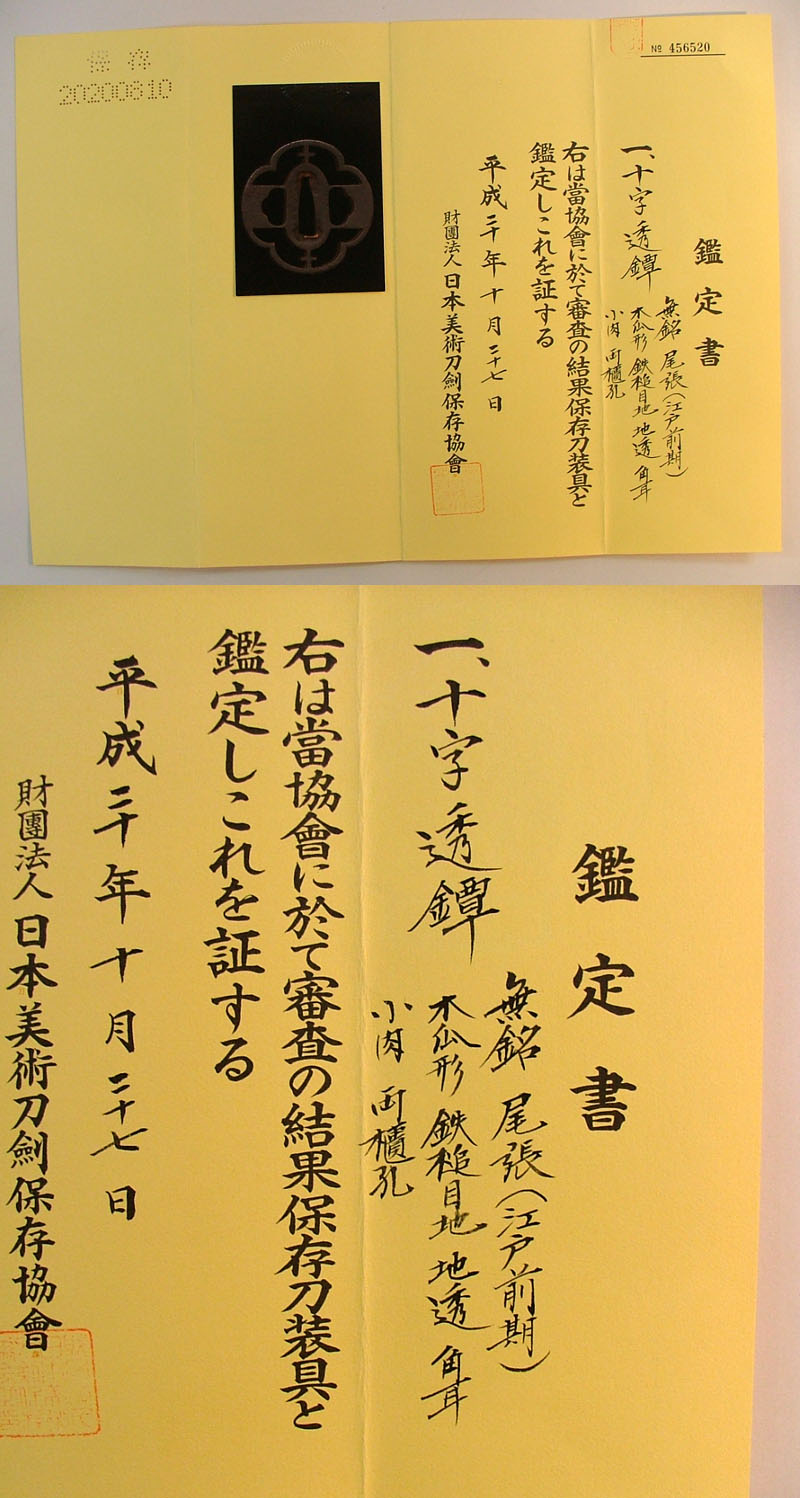 保存
20200610
№ 456520
鑑定書
一、十字透鐔
無銘 尾張(江戸前期)
木瓜形 鉄槌目地 地透 角耳
小肉 両櫃孔
右は當協會に於て審査の結果保存刀装具と
鑑定しこれを証する
平成二十年十月二十七日
財團法人 日本美術刀劍保存協會
鑑定書
一、十字透鐔
無銘 尾張(江戸前期)
木瓜形 鉄槌目地 地透 角耳
小肉 両櫃孔
右は當協會に於て審査の結果保存刀装具と
鑑定しこれを証する
平成二十年十月二十七日
財團法人 日本美術刀劍保存協會